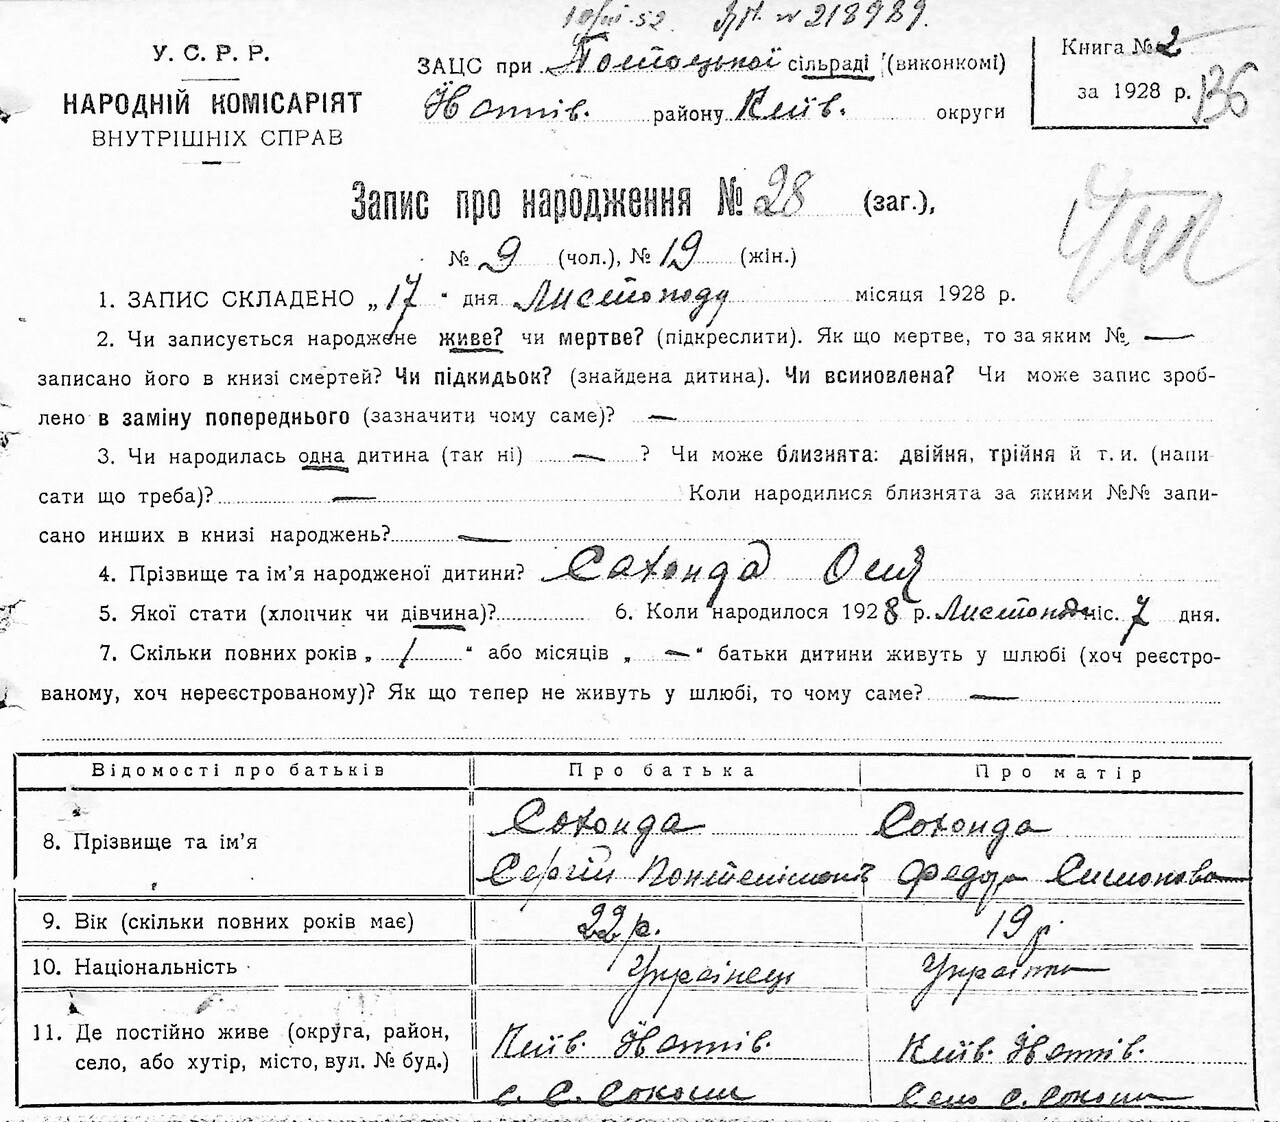 10/VIII-52 № 218989.
У. С. Р. Р.
НАРОДНІЙ КОМІСАРІЯТ
ВНУТРІШНІХ СПРАВ
ЗАЦС при сільраді (виконкомі)
району Київ. округи
Книга № 2
за 1928 р.
136
Запис про народження № 28 (заг.),
№ 9 (чол.), № 19 (жін.)
1. ЗАПИС СКЛАДЕНО „17" дня Листопаду місяця 1928 р.
2. Чи записується народжене живе? чи мертве? (підкреслити). Як що мертве, то за яким № —
записано його в книзі смертей? Чи підкидьок? (знайдена дитина). Чи всиновлена? Чи може запис зроб-
лено в заміну попереднього (зазначити чому саме)? —
3. Чи народилась одна дитина (так ні) — ? Чи може близнята: двійня, трійня й т. и. (напи
сати що треба)? — Коли народилися близнята за якими №№ запи-
сано инших в книзі народжень? —
4. Прізвище та ім'я народженої дитини? Сахонда
5. Якої стати (хлопчик чи дівчина)? 6. Коли народилося 1928 р. Листопад міс. 7 дня.
7. Скільки повних років „ 1 " або місяців „ — " батьки дитини живуть у шлюбі (хоч реєстро-
ваному, хоч нереєстрованому)? Як що тепер не живуть у шлюбі, то чому саме? —
Відомості про батьків Про батька Про матір
8. Прізвище та ім'я Сахонда Сахонда
Сергій Федора Симонова
9. Вік (скільки повних років має) 22 р. 19 р.
10. Національність Українець Українка
11. Де постійно живе (округа, район, Київ. Київ.
село, або хутір, місто, вул. № буд.) с. С. Село С.